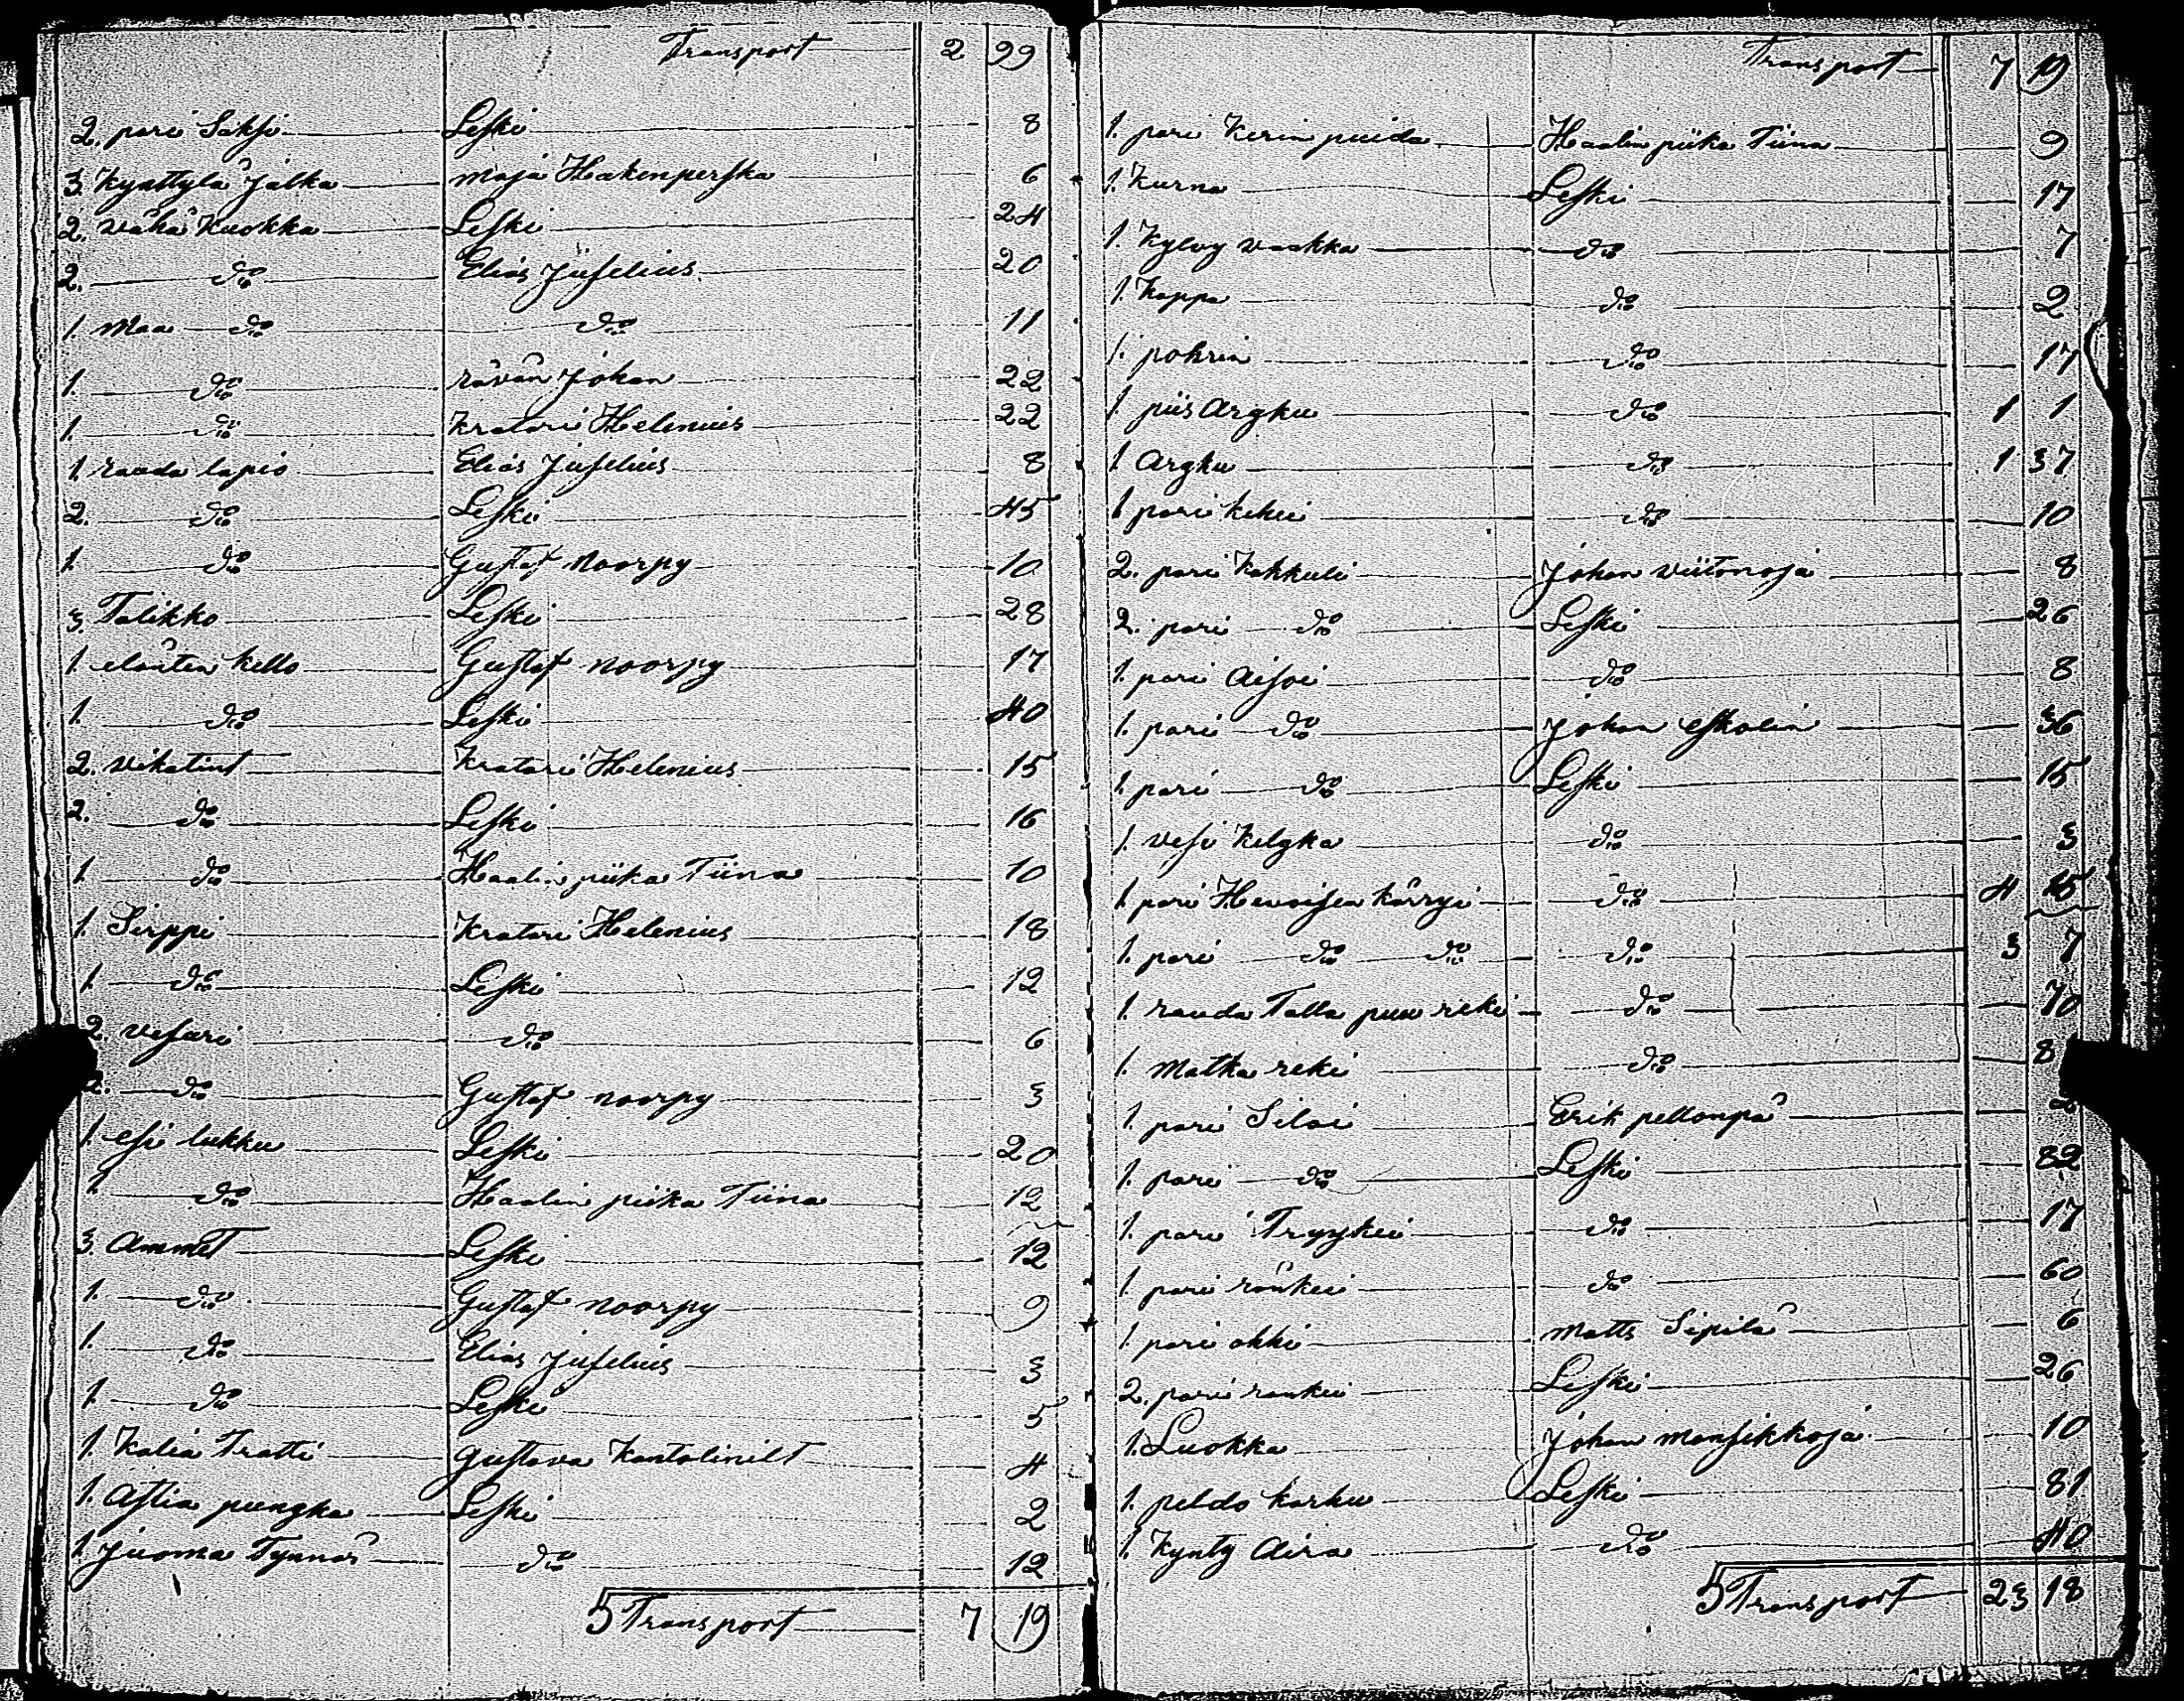 Transport 2 99
2. pari Saksi Leski 8
3. Kynttylä Jalka maja Hakenperska 6
2. vähä Kuokka Leski 24
2. do Elias Jufelius 20
1. Maa do do 11
1. do rävän Johan 22
1. do Kratari Helenius 22
1. rauda lapio Elias Jufelius 8
2. do Leski 45
1. do Gustaf Noorpy 10
3. Talikko Leski 28
1. elänten kello Gustaf noorpy 17
1. do Leski 40
2. vikatint Kratari Helenius 15
2. do Leski 16
1. do Haalin piika Tiina 10
1. Sirppi Kratari Helenius 18
1. do Leski 12
2. vesuri do 6
2. do Gustaf noorpy 3
1. esi lukku Leski 20
1. do Haalin piika Tiina 12
3. Ammet Leski 12
1. do Gustaf noorpy 9
1. do Elias Jufelius 3
1. do Leski 5
1. Kalia Tratti Gustava Kantolinilt 4
1. Astia pungka Leski 2
1. Juoma Tynnär do 12
5 Transport 7 19
Transport 7 19
1. pari Kerin puida Haalin piika Tiina 9
1. Kurna Leski 17
1. Kylvy vakka do 7
1. Kappa do 2
1. pohrin do 17
1. piis Argku do 1 1
1. Argku do 1 37
1. pari kehii do 10
2. pari Kakkuli Johan viitanoja 8
2. pari do Leski 26
1. pari Aisoi do 8
1. pari do Johan Eskolin 36
1. pari do Leski 15
1. vesi Kelgka do 3
1. pari Hevoisen kärryi do 4 15
1. pari do do do 3 7
1. rauda Talla puu reki do 70
1. Matka reki do 8
1. pari Siloi Erik peltonpä 2
1. pari do Leski 82
1. pari Tryykii do 17
1. pari ränkii do 60
1. pari ohki Matts Sipilä 6
2. pari rankii Leski 26
1. Luokka Johan mansikkoja 10
1. peldo karhu Leski 81
1. Kynty Aira do 40
5 Transport 23 18